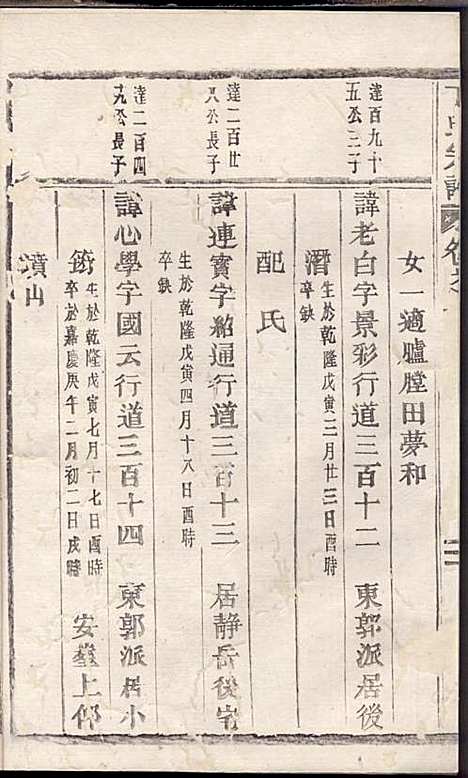 女一適臚膛田夢和
達百九十
五公三子
諱老白字景彩行道三百十二 東郭派居後
潛 生於乾隆戊寅三月廿三日酉時
卒缺
配氏
達二百廿
八公長子
諱連實字紹通行道三百十三 居靜岳後宅
生於乾隆戊寅四月十八日酉時
卒缺
達二百四
九公長子
諱心學字國云行道三百十四 東郭派居小
生於乾隆戊寅七月十七日酉時
卒於嘉慶庚年二月初二日戌時
安 上邨
墳山